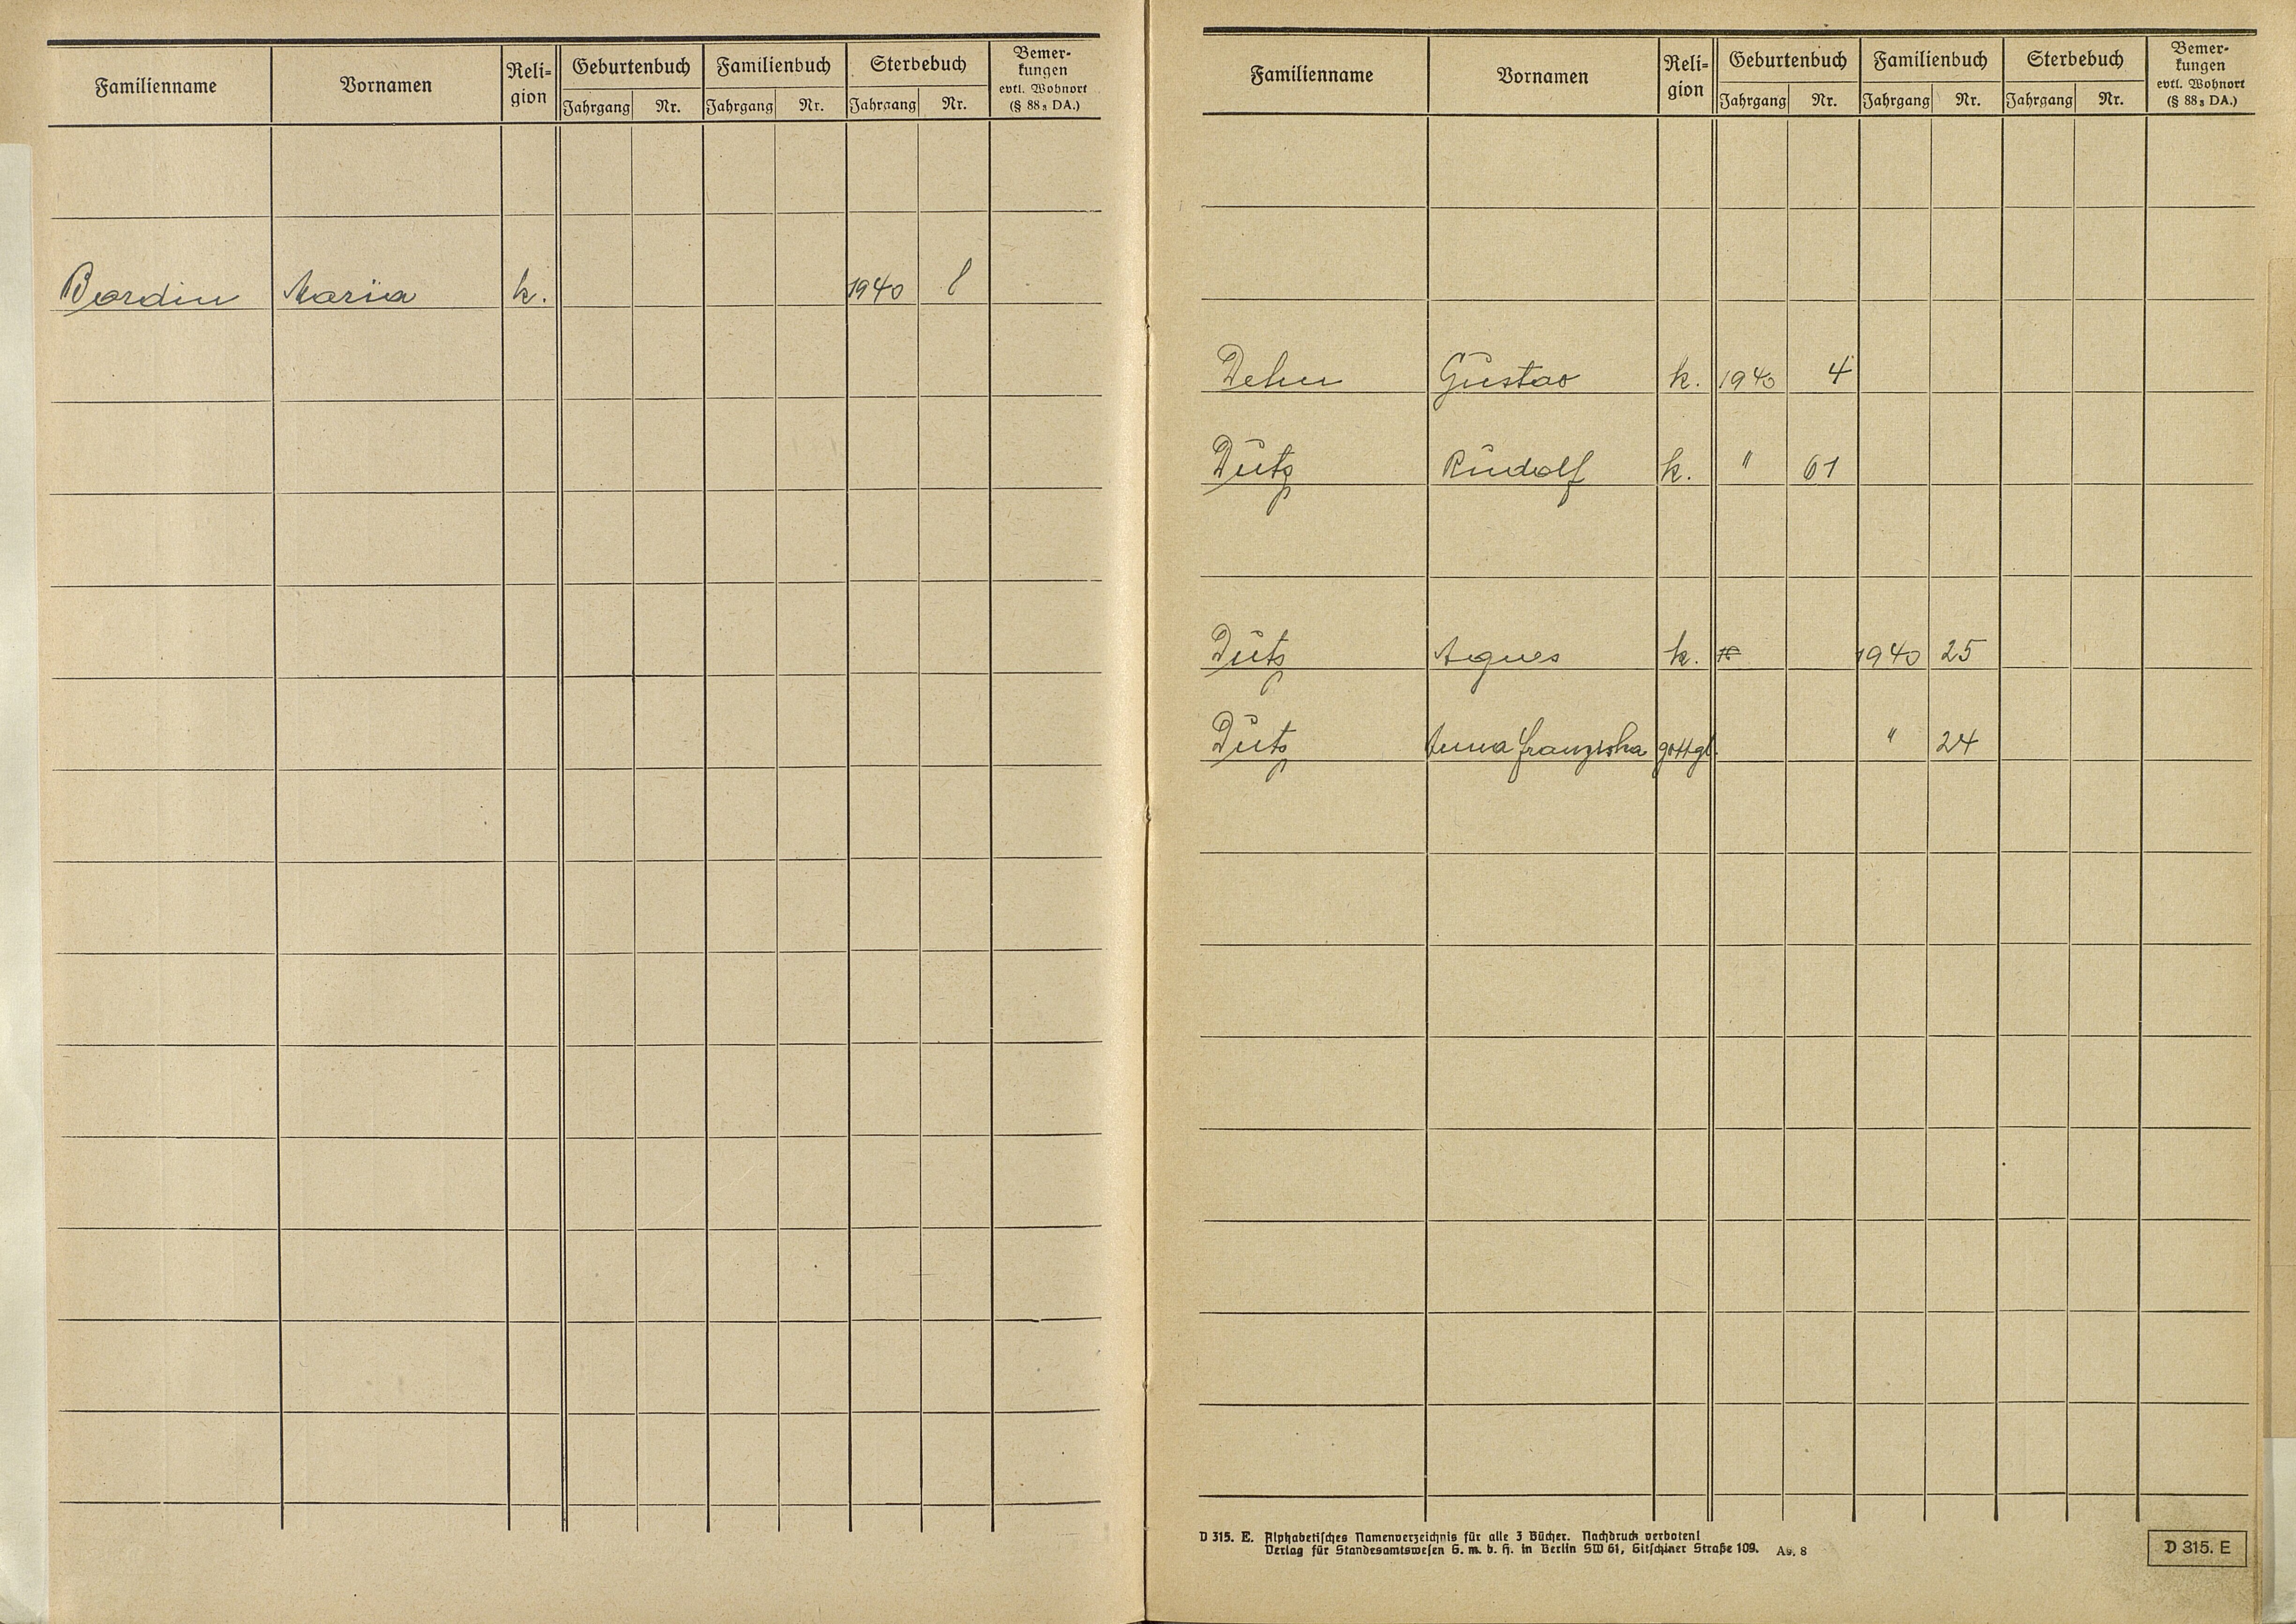 Familienname Vornamen Reli- Geburtenbuch Familienbuch Sterbebuch Bemer-
gion Jahrgang Nr. Jahrgang Nr. Jahrgang Nr. kungen
evtl. Wohnort
(§ 88₃ DA.)
Bordin Maria k. 1940 8
Familienname Vornamen Reli- Geburtenbuch Familienbuch Sterbebuch Bemer-
gion Jahrgang Nr. Jahrgang Nr. Jahrgang Nr. kungen
evtl. Wohnort
(§ 88₃ DA.)
Dehn Gustav k. 1940 4
Dutz Rudolf k. " 61
Dutz Agnes k. 1940 25
Dutz Anna Franziska gottgl. " 24
D 315. E. Alphabetisches Namenverzeichnis für alle 3 Bücher. Nachdruck verboten!
Verlag für Standesamtswesen G. m. b. H. in Berlin SW 61, Gitschiner Straße 109. A9. 8
D 315. E